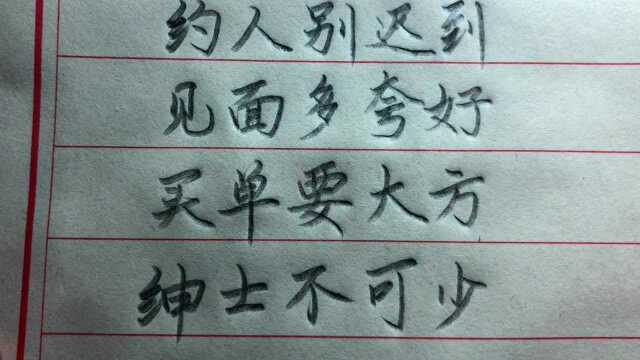 约人别迟到
见面多夸好
买单要大方
绅士不可少